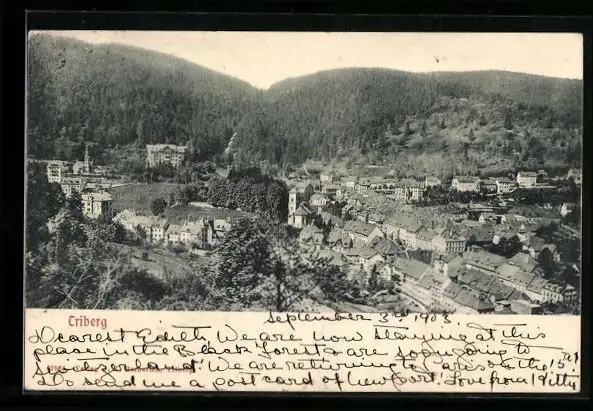 Triberg
September 3rd 1903.
Dearest Edith. We are now staying at this
place in the Black Forest & are going to
Switzerland next. We are returning to Paris on the 15th
Do send me a post card of Newport. Love from Kitty